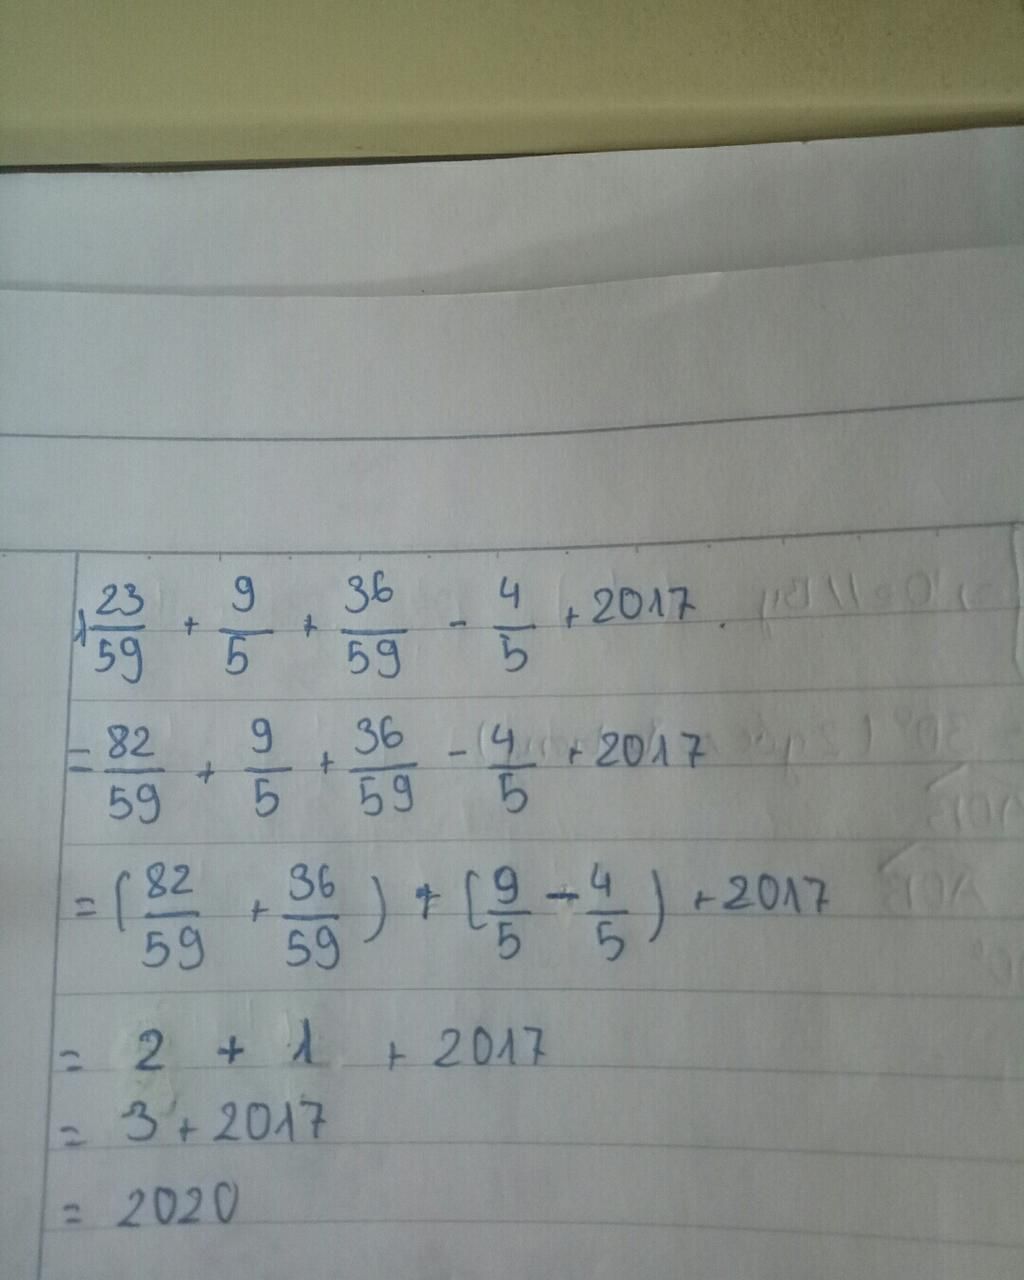 1 23/59 + 9/5 + 36/59 - 4/5 + 2017.
= 82/59 + 9/5 + 36/59 - 4/5 + 2017
= (82/59 + 36/59) + (9/5 - 4/5) + 2017
= 2 + 1 + 2017
= 3 + 2017
= 2020